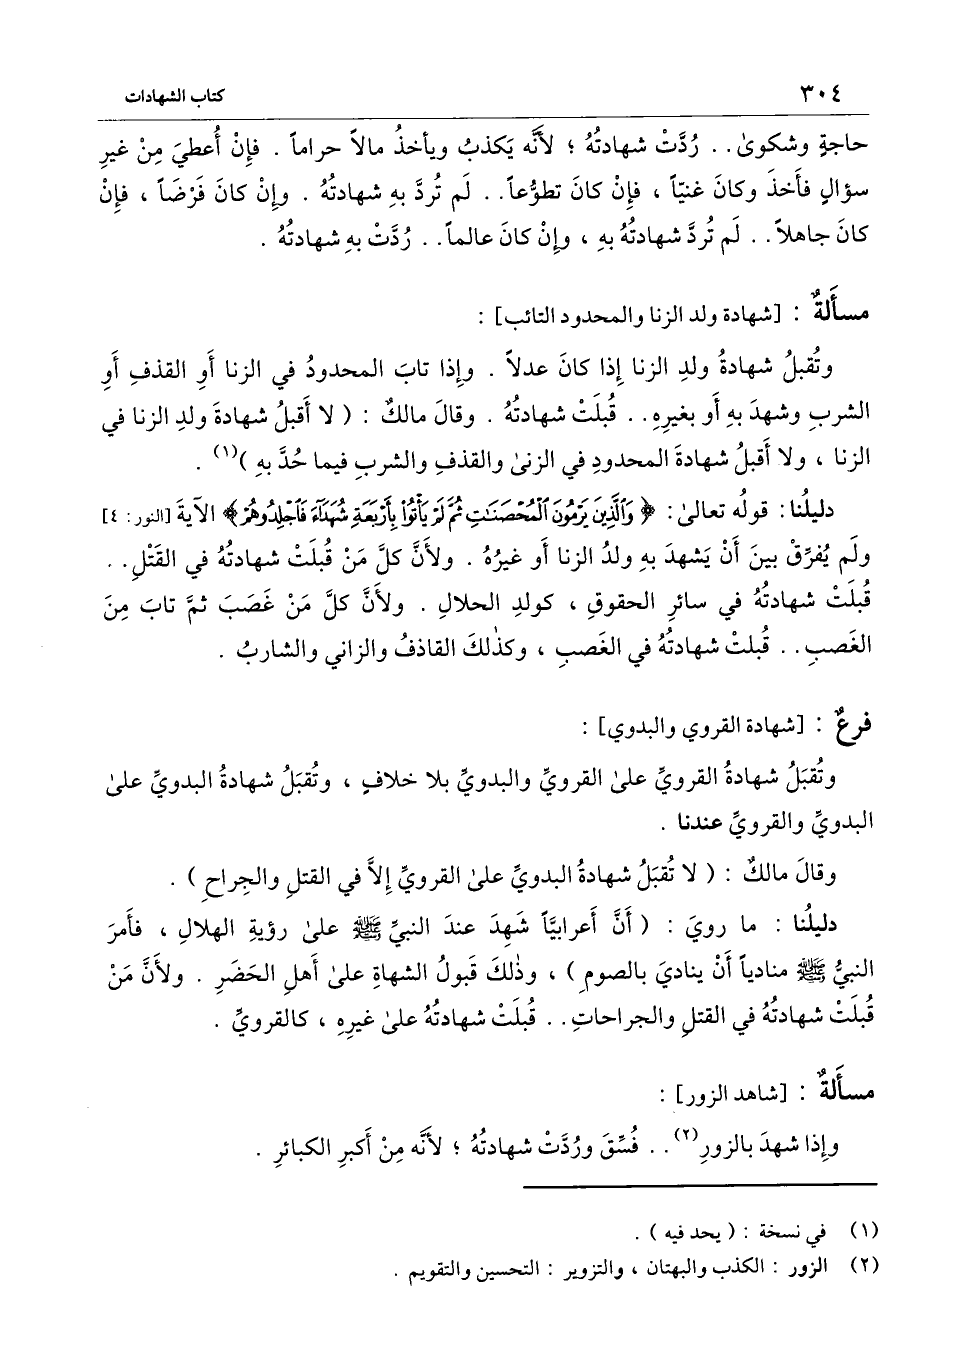 ٣٠٤ كتاب الشهادات
حاجةٍ وشكوىٰ.. رُدَّتْ شهادتُهُ ؛ لأنَّه يَكذبُ ويأخذُ مالاً حراماً . فإنْ أُعطيَ مِنْ غيرِ
سؤالٍ فأَخذَ وكانَ غنيّاً ، فإنْ كانَ تطوُّعاً.. لَم تُردَّ بهِ شهادتُهُ . وإنْ كانَ فَرْضَاً ، فإنْ
كانَ جاهلاً.. لَم تُردَّ شهادتُهُ بهِ ، وإنْ كانَ عالماً.. رُدَّتْ بهِ شهادتُهُ .
مسأَلةٌ : [شهادة ولد الزنا والمحدود التائب] :
وتُقبلُ شهادةُ ولدِ الزنا إذا كانَ عدلاً . وإذا تابَ المحدودُ في الزنا أَوِ القذفِ أَوِ
الشربِ وشهدَ بهِ أَو بغيرِهِ.. قُبلَتْ شهادتُهُ . وقالَ مالكٌ : ( لا أَقبلُ شهادةَ ولدِ الزنا في
الزنا ، ولا أَقبلُ شهادةَ المحدودِ في الزنىٰ والقذفِ والشربِ فيما حُدَّ بهِ )(١) .
دليلُنا : قولُه تعالىٰ : ﴿ وَٱلَّذِينَ يَرْمُونَ ٱلْمُحْصَنَـٰتِ ثُمَّ لَمْ يَأْتُوا۟ بِأَرْبَعَةِ شُهَدَآءَ فَٱجْلِدُوهُمْ ﴾ الآيةَ [النور : ٤]
ولَم يُفرِّقْ بينَ أَنْ يَشهدَ بهِ ولدُ الزنا أَو غيرُهُ . ولأَنَّ كلَّ مَنْ قُبلَتْ شهادتُهُ في القَتْلِ..
قُبلَتْ شهادتُهُ في سائرِ الحقوقِ ، كولدِ الحلالِ . ولأَنَّ كلَّ مَنْ غَصَبَ ثمَّ تابَ مِنَ
الغَصبِ.. قُبلتْ شهادتُهُ في الغَصبِ ، وكذٰلكَ القاذفُ والزاني والشاربُ .
فرعٌ : [شهادة القروي والبدوي] :
وتُقبَلُ شهادةُ القرويِّ علىٰ القرويِّ والبدويِّ بلا خلافٍ ، وتُقبَلُ شهادةُ البدويِّ علىٰ
البدويِّ والقرويِّ عندنا .
وقالَ مالكٌ : ( لا تُقبَلُ شهادةُ البدويِّ علىٰ القرويِّ إلاَّ في القتلِ والجِراحِ ) .
دليلُنا : ما رويَ : ( أَنَّ أَعرابيَّاً شَهِدَ عندَ النبيِّ ﷺ علىٰ رؤيةِ الهلالِ ، فأَمرَ
النبيُّ ﷺ منادياً أَنْ يناديَ بالصومِ ) ، وذٰلكَ قَبولُ الشهاةِ علىٰ أَهلِ الحَضَرِ . ولأَنَّ مَنْ
قُبلَتْ شهادتُهُ في القتلِ والجراحاتِ.. قُبلَتْ شهادتُهُ علىٰ غيرِهِ ، كالقرويِّ .
مسأَلةٌ : [شاهد الزور] :
وإِذا شهدَ بالزورِ(٢).. فُسِّقَ ورُدَّتْ شهادتُهُ ؛ لأَنَّه مِنْ أَكبرِ الكبائرِ .
(١) في نسخة : ( يحد فيه ) .
(٢) الزور : الكذب والبهتان ، والتزوير : التحسين والتقويم .